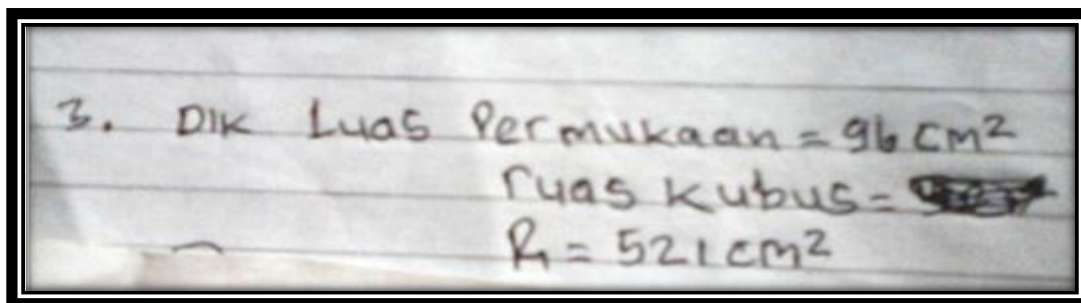 3. DIK Luas Permukaan = 96 cm²
ruas kubus =
R = 521 cm²